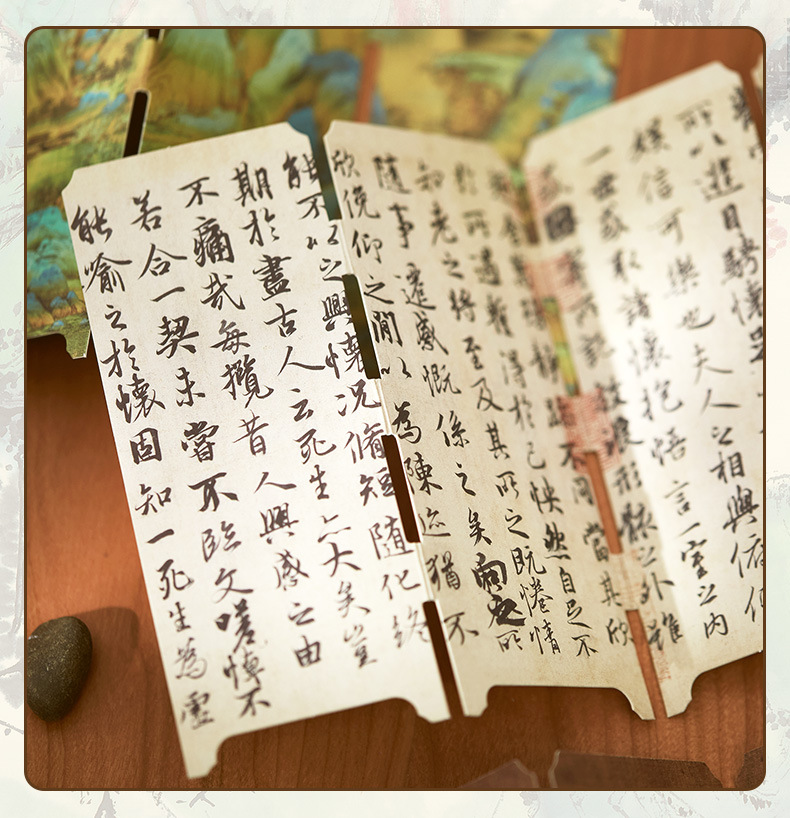 所以遊目騁懷足
娛信可樂也夫人之相與俯仰
一世或取諸懷抱悟言一室之內
或因寄所託放浪形骸之外雖
不同當其欣
於所遇蹔得於己怏然自足不
知老之將至及其所之既惓情
隨事遷感慨係之矣向之所
欣俛仰之閒以為陳迹猶不
能不以之興懷況脩短隨化終
期於盡古人云死生亦大矣豈
不痛哉每攬昔人興感之由
若合一契未嘗不臨文嗟悼不
能喻之於懷固知一死生為虛